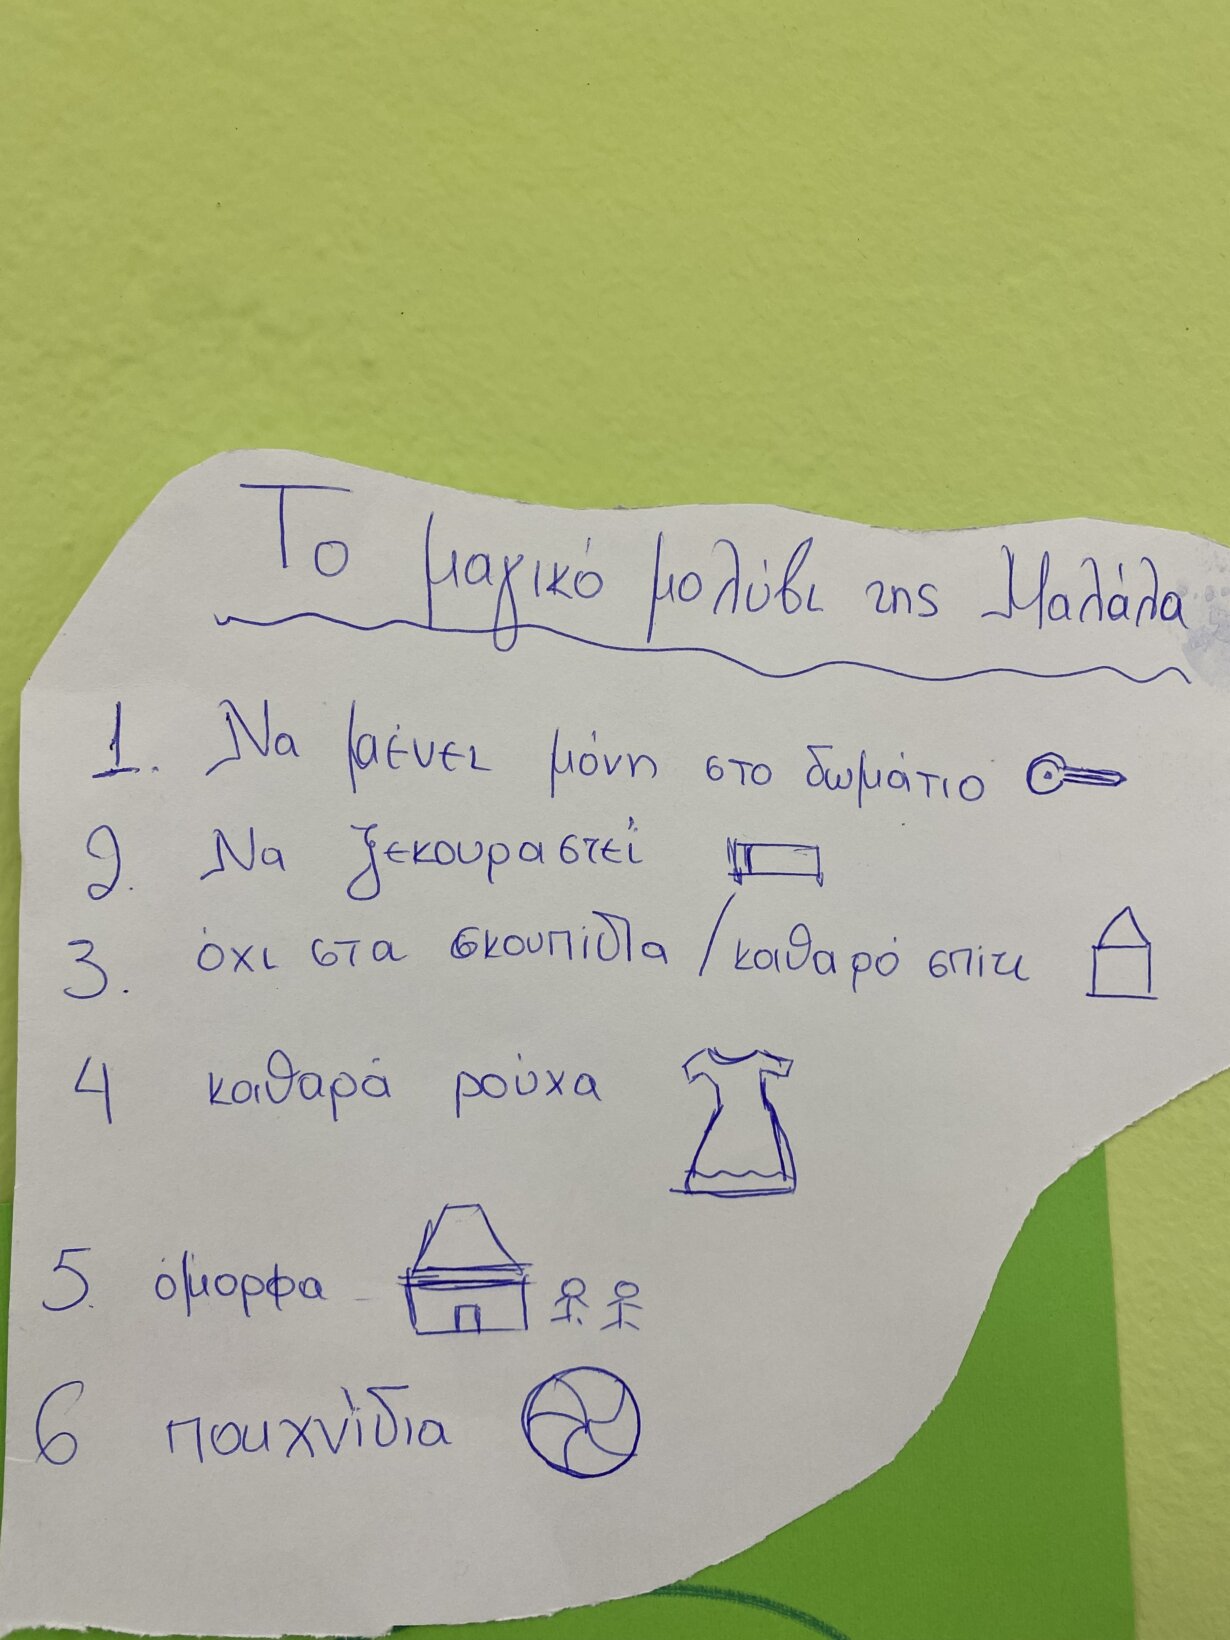 Το μαγικό μολύβι της Μαλάλα
1. Να μένει μόνη στο δωμάτιο
2. Να ξεκουραστεί
3. όχι στα σκουπίδια / καθαρό σπίτι
4 καθαρά ρούχα
5. όμορφα
6 παιχνίδια